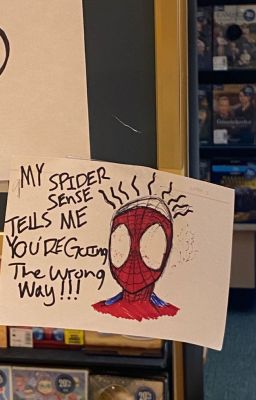 MY SPIDER
SENSE
TELLS ME
YOU'RE Going
The Wrong
Way!!!